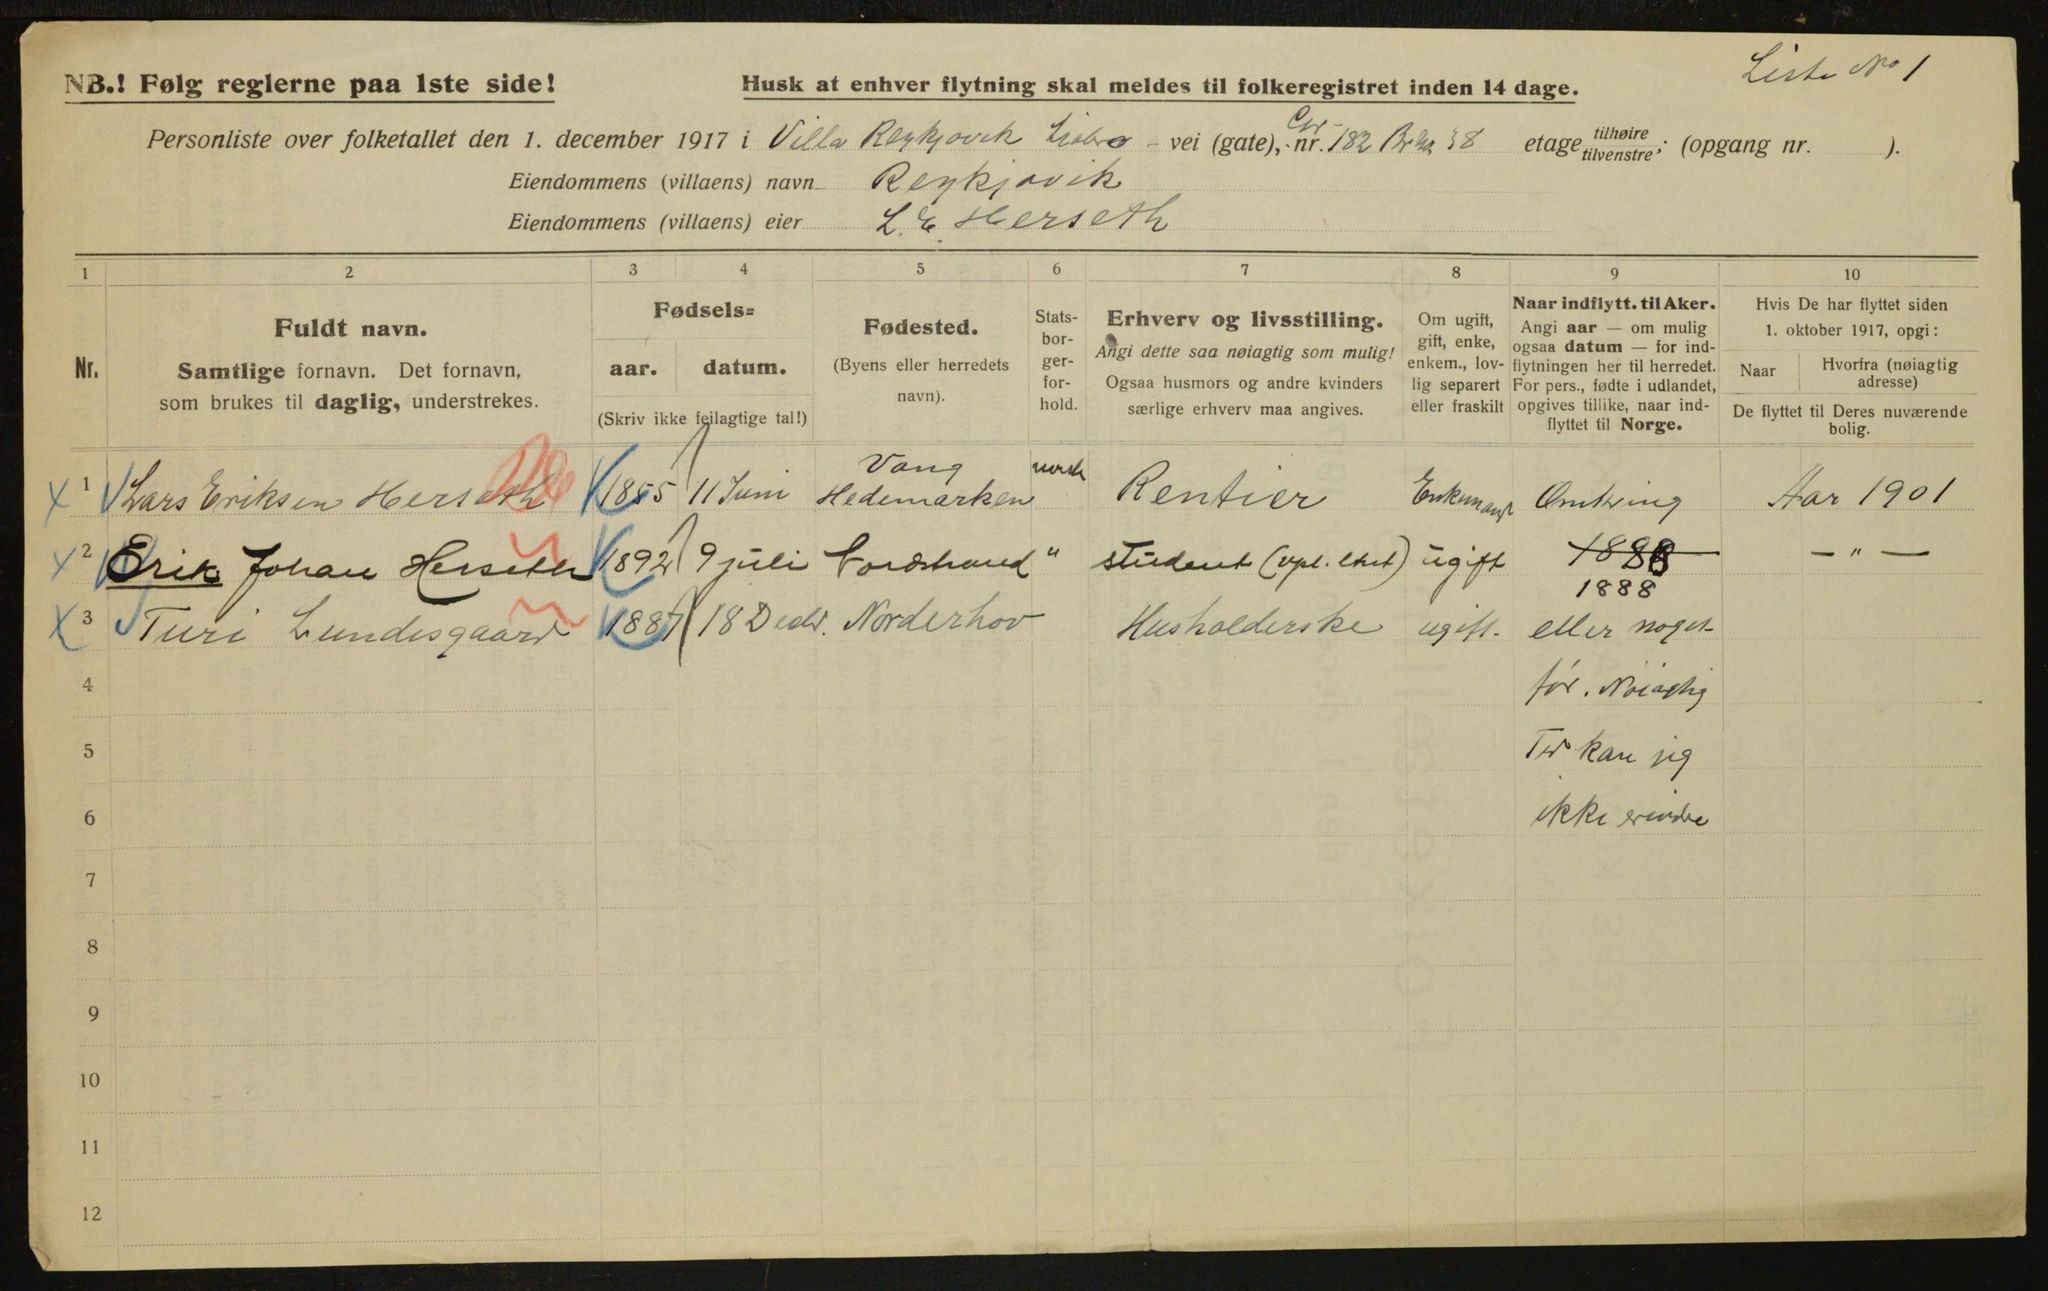 Liste No 1
NB.! Følg reglerne paa 1ste side!
Husk at enhver flytning skal meldes til folkeregistret inden 14 dage.
Personliste over folketallet den 1. december 1917 i Villa Reykjavik – vei (gate), nr. 182 38 etage tilhøire/tilvenstre; (opgang nr. ).
Eiendommens (villaens) navn Reykjavik
Eiendommens (villaens) eier L. E. Herseth
1 2 3 4 5 6 7 8 9 10
Nr.
Fuldt navn.
Samtlige fornavn. Det fornavn,
som brukes til daglig, understrekes.
Fødsels=
aar. datum.
(Skriv ikke feilagtige tal!)
Fødested.
(Byens eller herredets
navn).
Stats-
bor-
ger-
for-
hold.
Erhverv og livsstilling.
Angi dette saa nøiagtig som mulig!
Ogsaa husmors og andre kvinders
særlige erhverv maa angives.
Om ugift,
gift, enke,
enkem., lov-
lig separert
eller fraskilt
Naar indflytt. til Aker.
Angi aar — om mulig
ogsaa datum — for ind-
flytningen her til herredet.
For pers., fødte i udlandet,
opgives tillike, naar ind-
flyttet til Norge.
Hvis De har flyttet siden
1. oktober 1917, opgi:
Naar
Hvorfra (nøiagtig
adresse)
De flyttet til Deres nuværende
bolig.
1 Lars Eriksen Herseth 1855 11 Juni Vang Hedemarken norsk Rentier Enkemand Omkring Aar 1901
2 Erik Johan Herseth 1892 9 juli Nordstrand " student ugift 1888 — " —
3 Turi Lundesgaard 1887 18 Decbr. Norderhov Husholderske ugift. eller noget
4 før. Nøiagtig
5 Tid kan jeg
6 ikke erindre
7
8
9
10
11
12